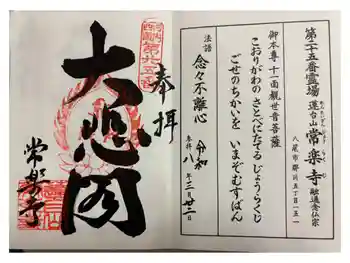 第二十五番霊場
蓮台山 常楽寺 融通念仏宗
八尾市郡川五丁目一五一
御本尊 十一面観世音菩薩
こおりがわの さとべにたてる じょうらくじ
ごせのちかいを いまぞむすばん
法語 念々不離心
参拝 令和八年三月廿二日
奉拝
大悲閣
常楽寺